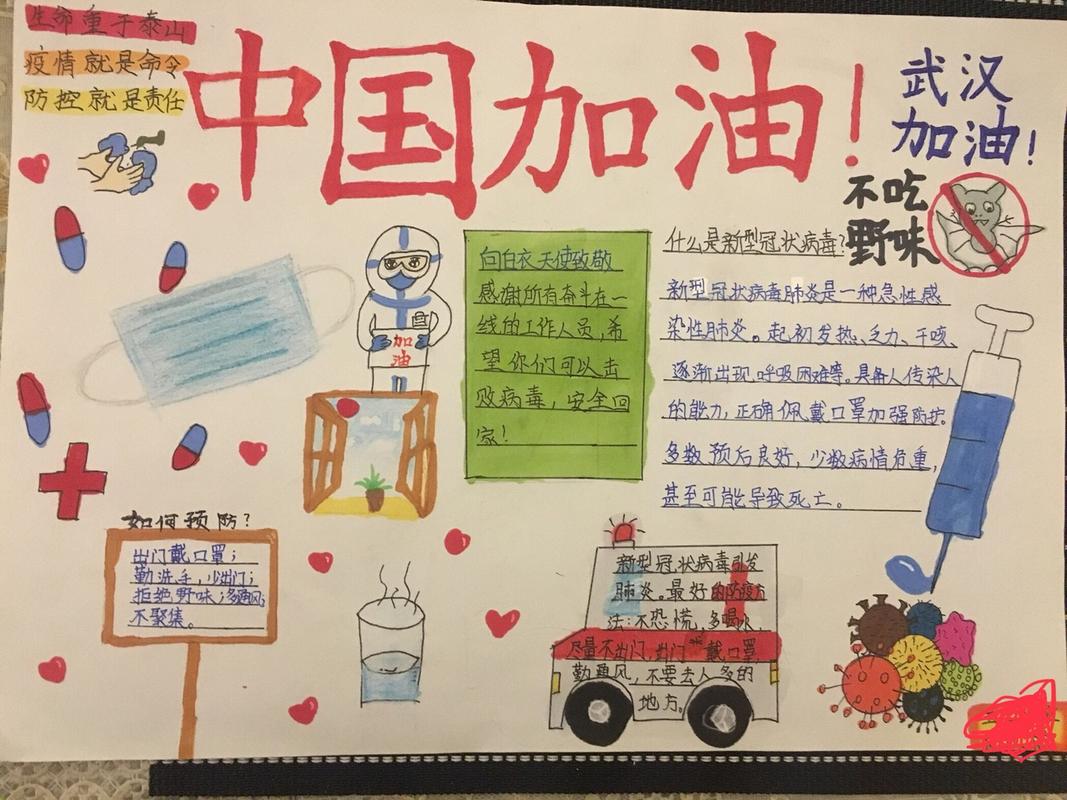 生命重于泰山
疫情就是命令
防控就是责任
中国加油！
武汉
加油！
不吃
野味
什么是新型冠状病毒？
新型冠状病毒肺炎是一种急性感
染性肺炎。起初发热、乏力、干咳、
逐渐出现呼吸困难等。具备人传染人
的能力，正确佩戴口罩加强防控。
多数预后良好，少数病情危重，
甚至可能导致死亡。
向白衣天使致敬
感谢所有奋斗在一
线的工作人员，希
望你们可以击
败病毒，安全回
家！
加
油
如何预防？
出门戴口罩；
勤洗手，少出门；
拒绝野味；多通风；
不聚集。
新型冠状病毒引发
肺炎。最好的防疫方
法：不恐慌，多喝水、
尽量不出门，出门戴口罩
勤通风，不要去人多的
地方。